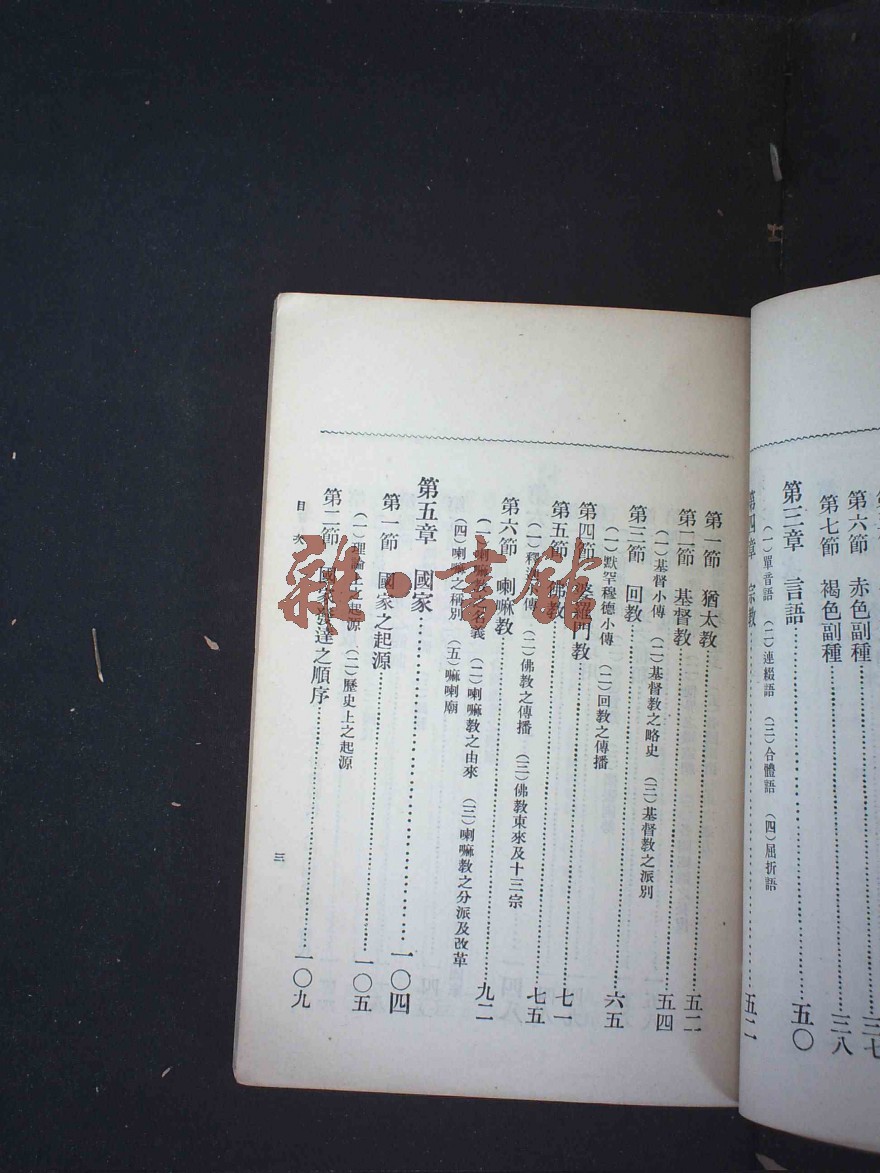 第六節 赤色副種 三七
第七節 褐色副種 三八
第三章 言語 五〇
(一)單音語 (二)連綴語 (三)合體語 (四)屈折語
第四章 宗教 五二
第一節 猶太教 五二
第二節 基督教 五四
(一)基督小傳 (二)基督教之略史 (三)基督教之派別
第三節 回教 六五
(一)默罕穆德小傳 (二)回教之傳播
第四節 婆羅門教 七一
第五節 佛教 七五
(一)釋迦小傳 (二)佛教之傳播 (三)佛教東來及十三宗
第六節 喇嘛教 九二
(一)喇嘛教之名義 (二)喇嘛教之由來 (三)喇嘛教之分派及改革
(四)喇嘛之稱別 (五)嘛喇廟
第五章 國家 一〇四
第一節 國家之起源 一〇五
(一)理論上之起源 (二)歷史上之起源
第二節 國家發達之順序 一〇九
目次
三
雜·書館